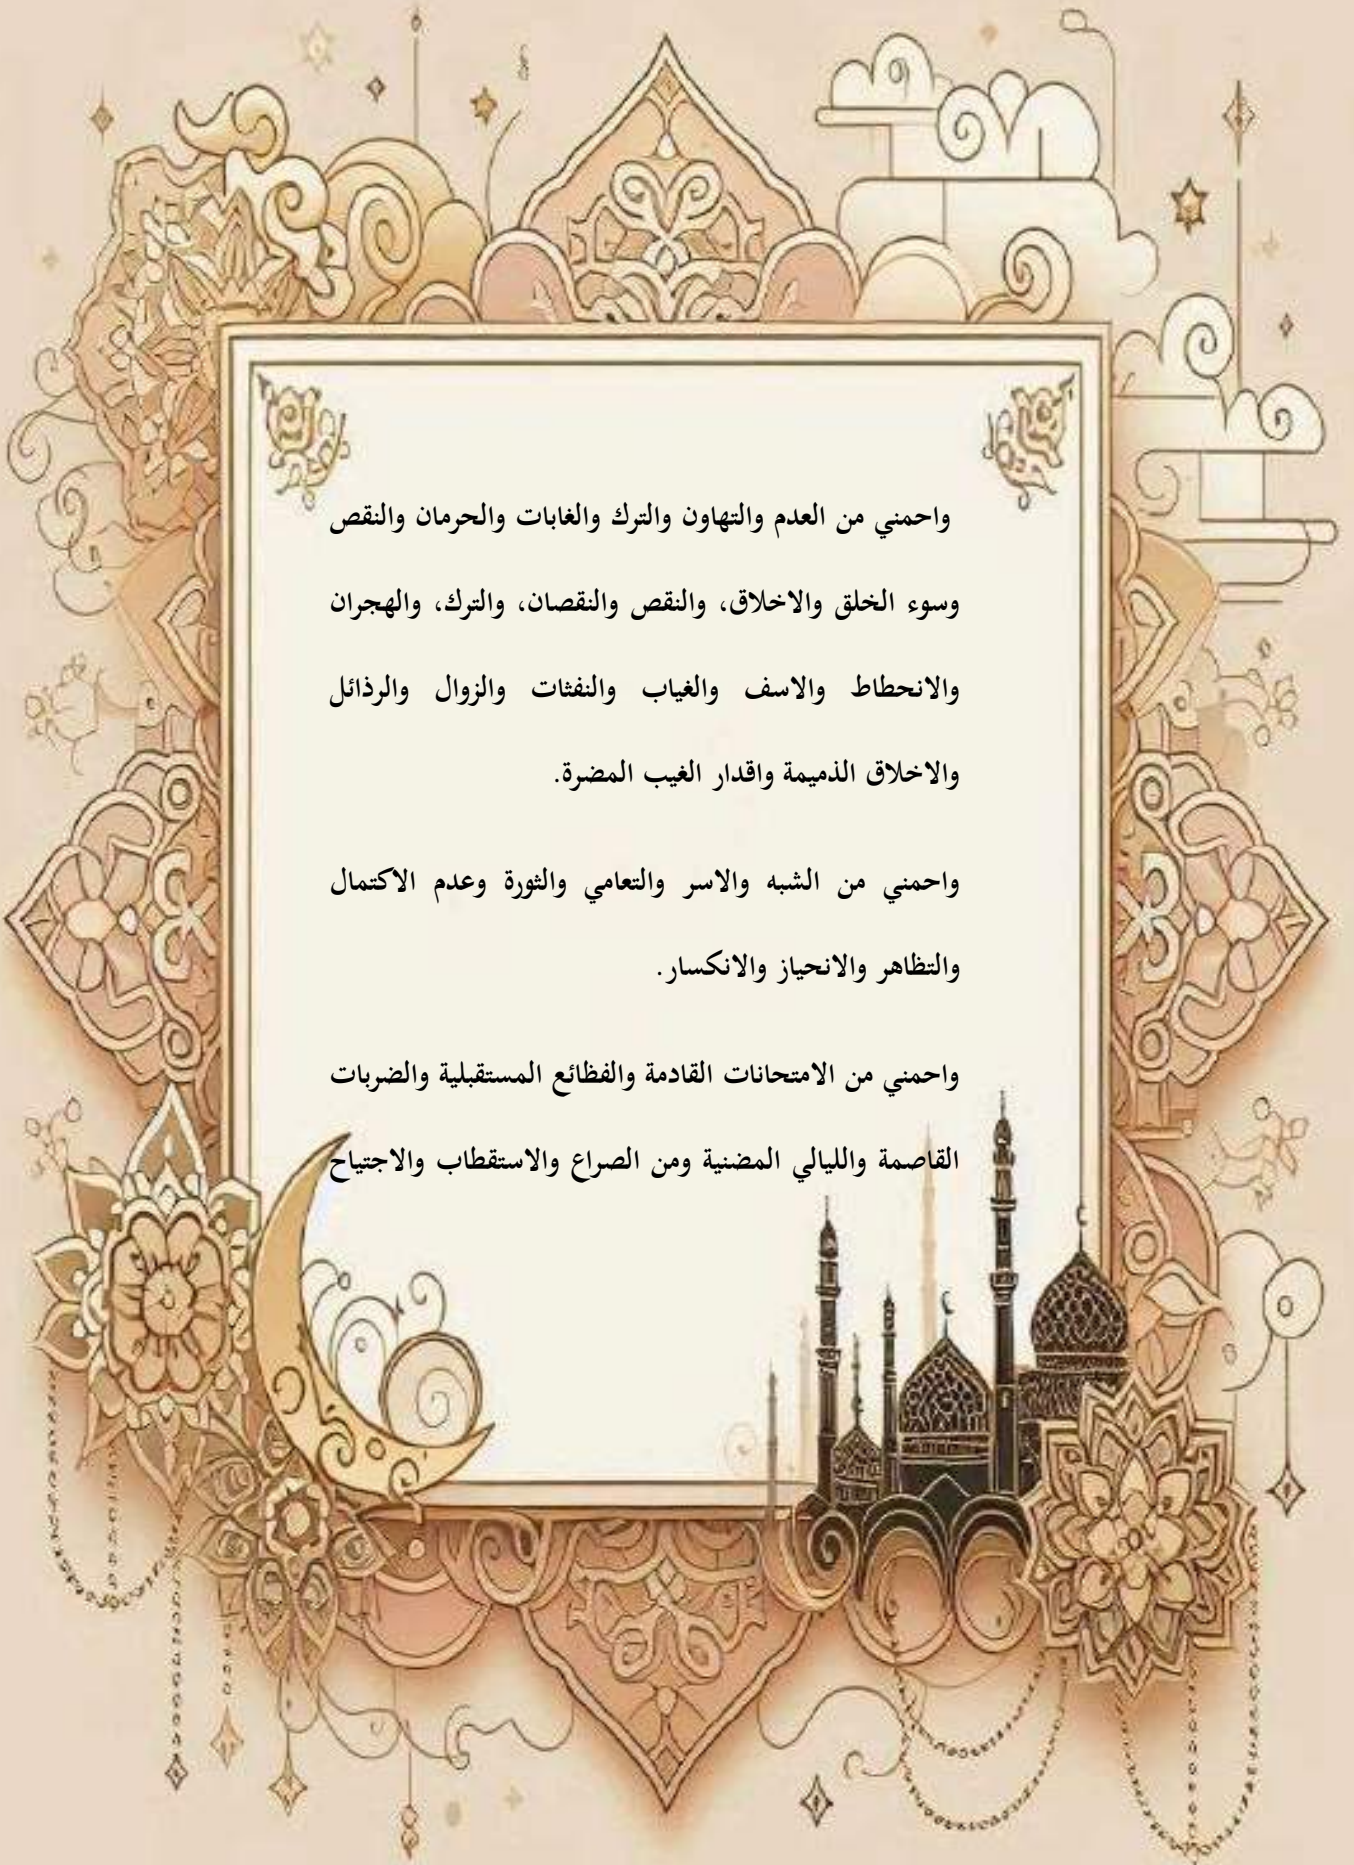 واحمني من العدم والتهاون والترك والغابات والحرمان والنقص
وسوء الخلق والاخلاق، والنقص والنقصان، والترك، والهجران
والانحطاط والاسف والغياب والنفثات والزوال والرذائل
والاخلاق الذميمة واقدار الغيب المضرة.
واحمني من الشبه والاسر والتعامي والثورة وعدم الاكتمال
والتظاهر والانحياز والانكسار.
واحمني من الامتحانات القادمة والفظائع المستقبلية والضربات
القاصمة والليالي المضنية ومن الصراع والاستقطاب والاجتياح